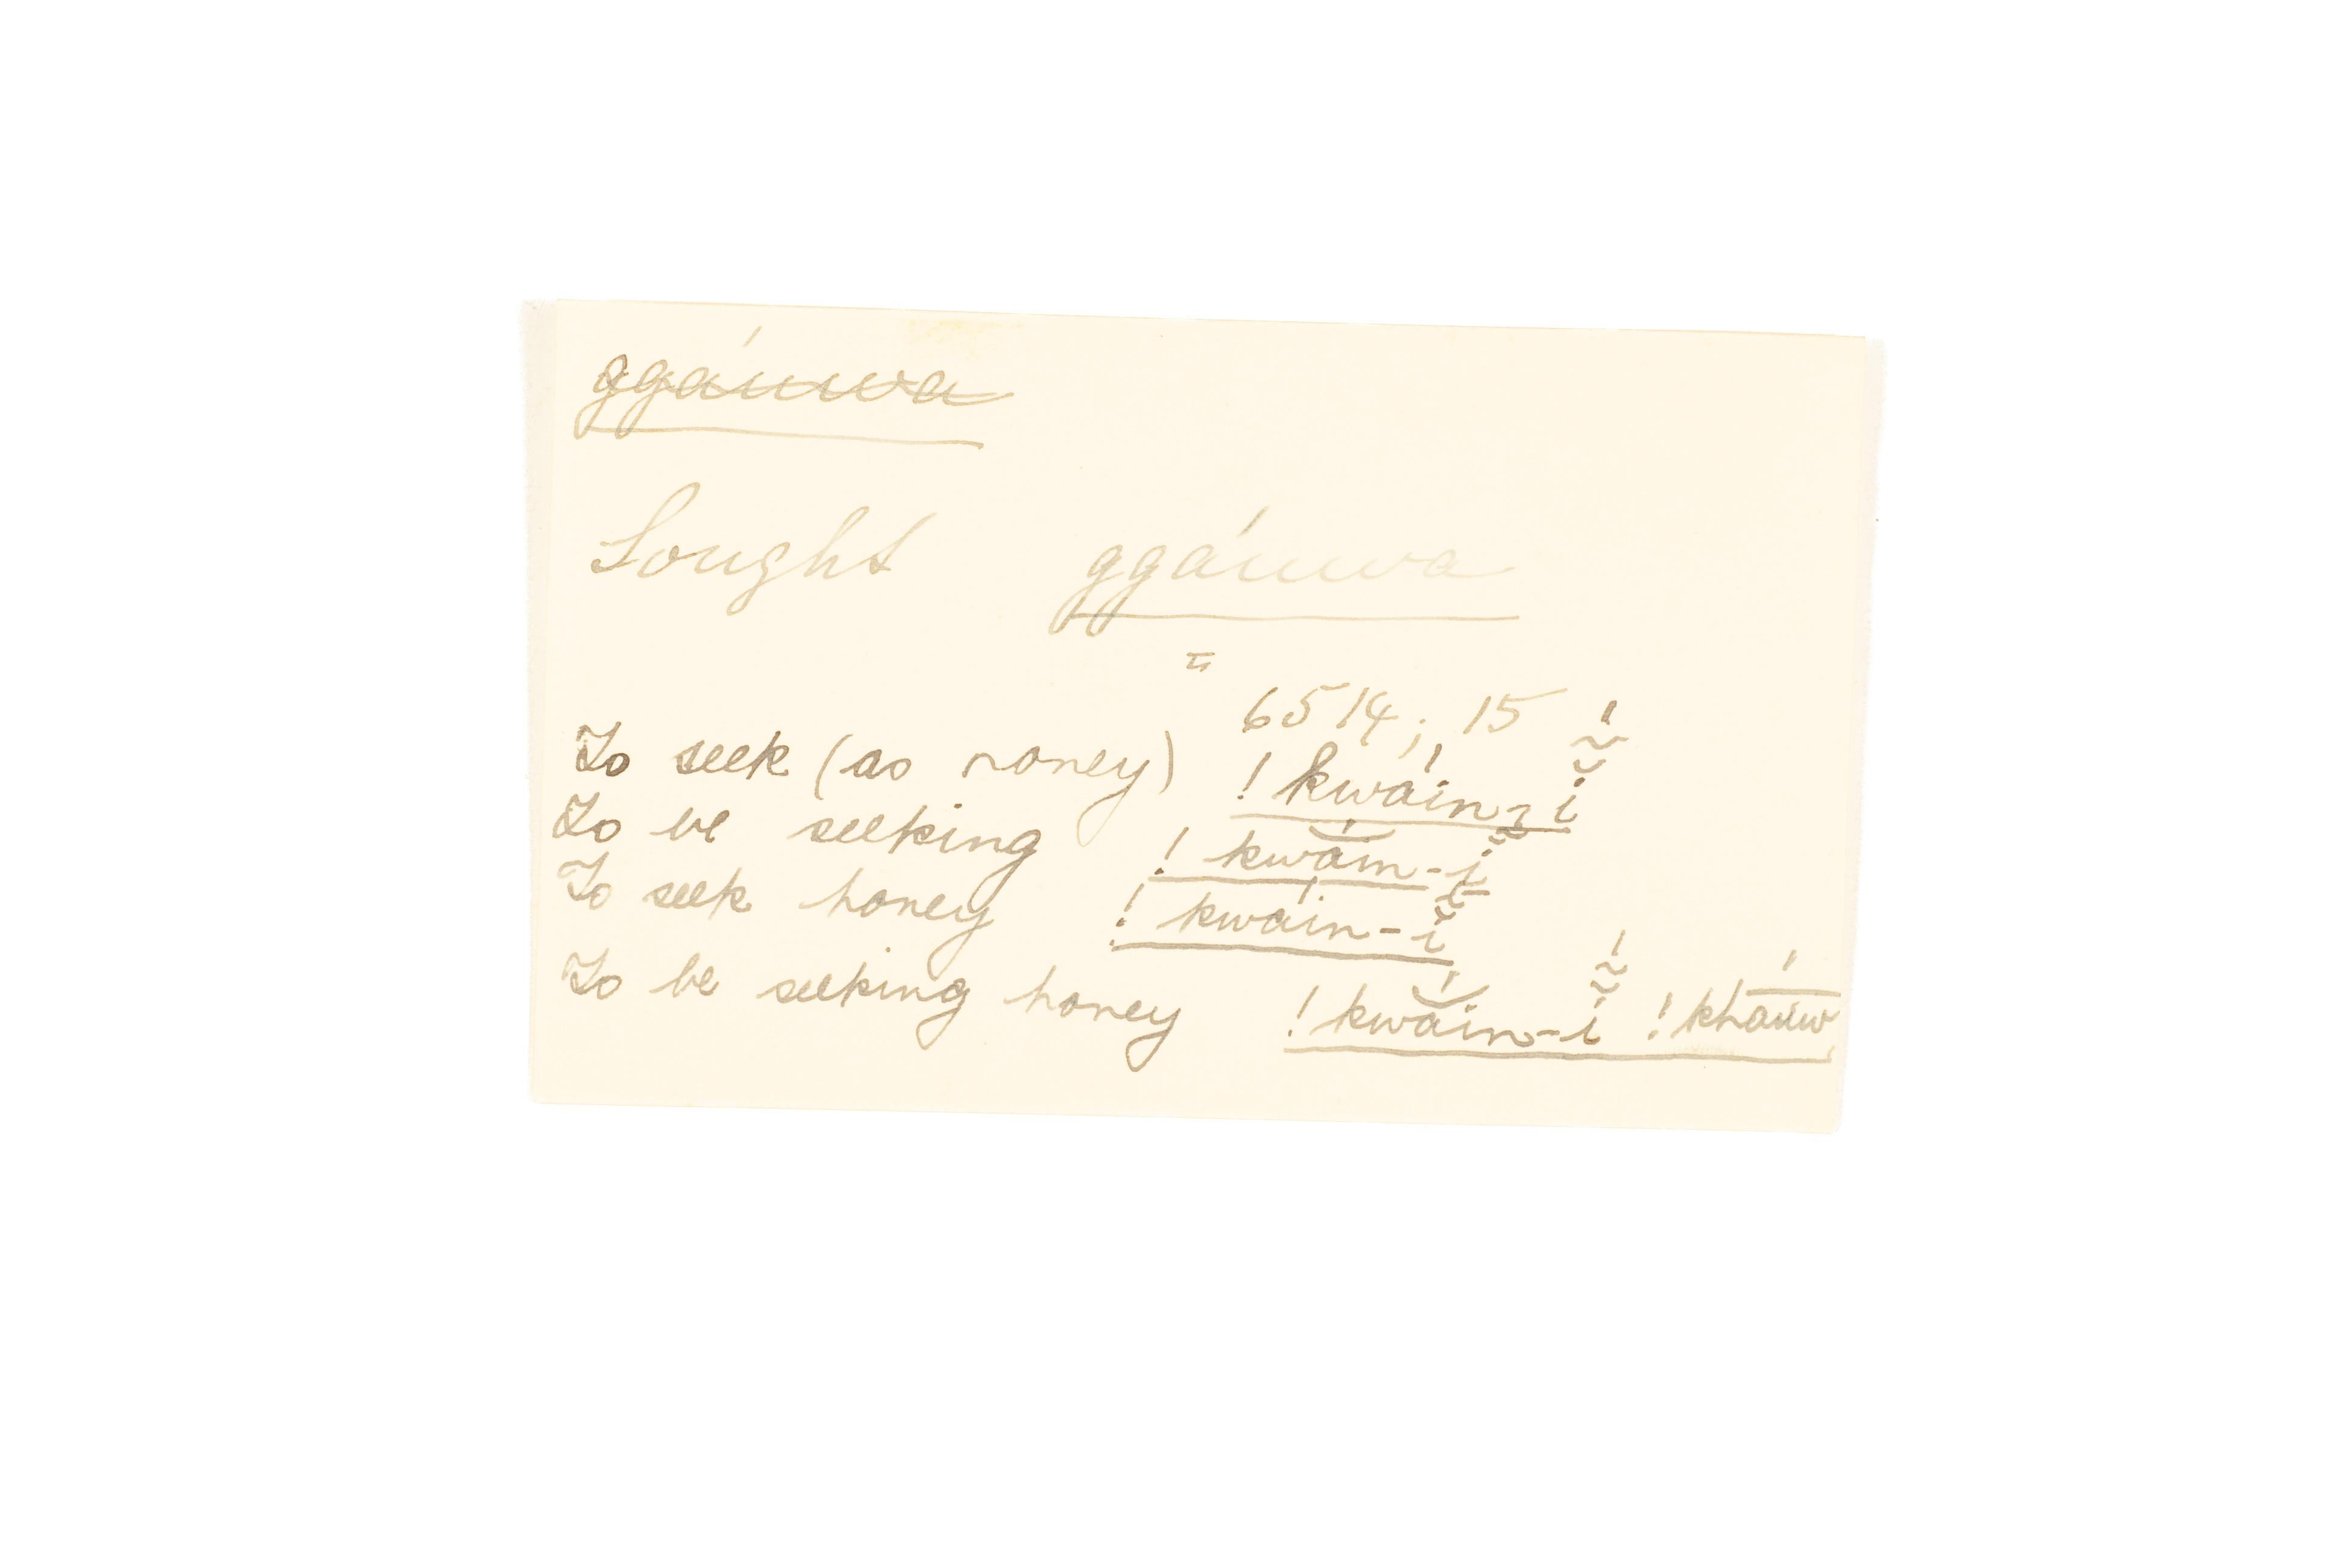 ggáuwa
Sought ggáuwa
6514; 15
To seek (as honey) !kwáin-ĩ́
To be seeking !kwắin-ĩ
To seek honey !kwáin-ĩ
To be seeking honey !kwắin-ĩ́ !kháuw